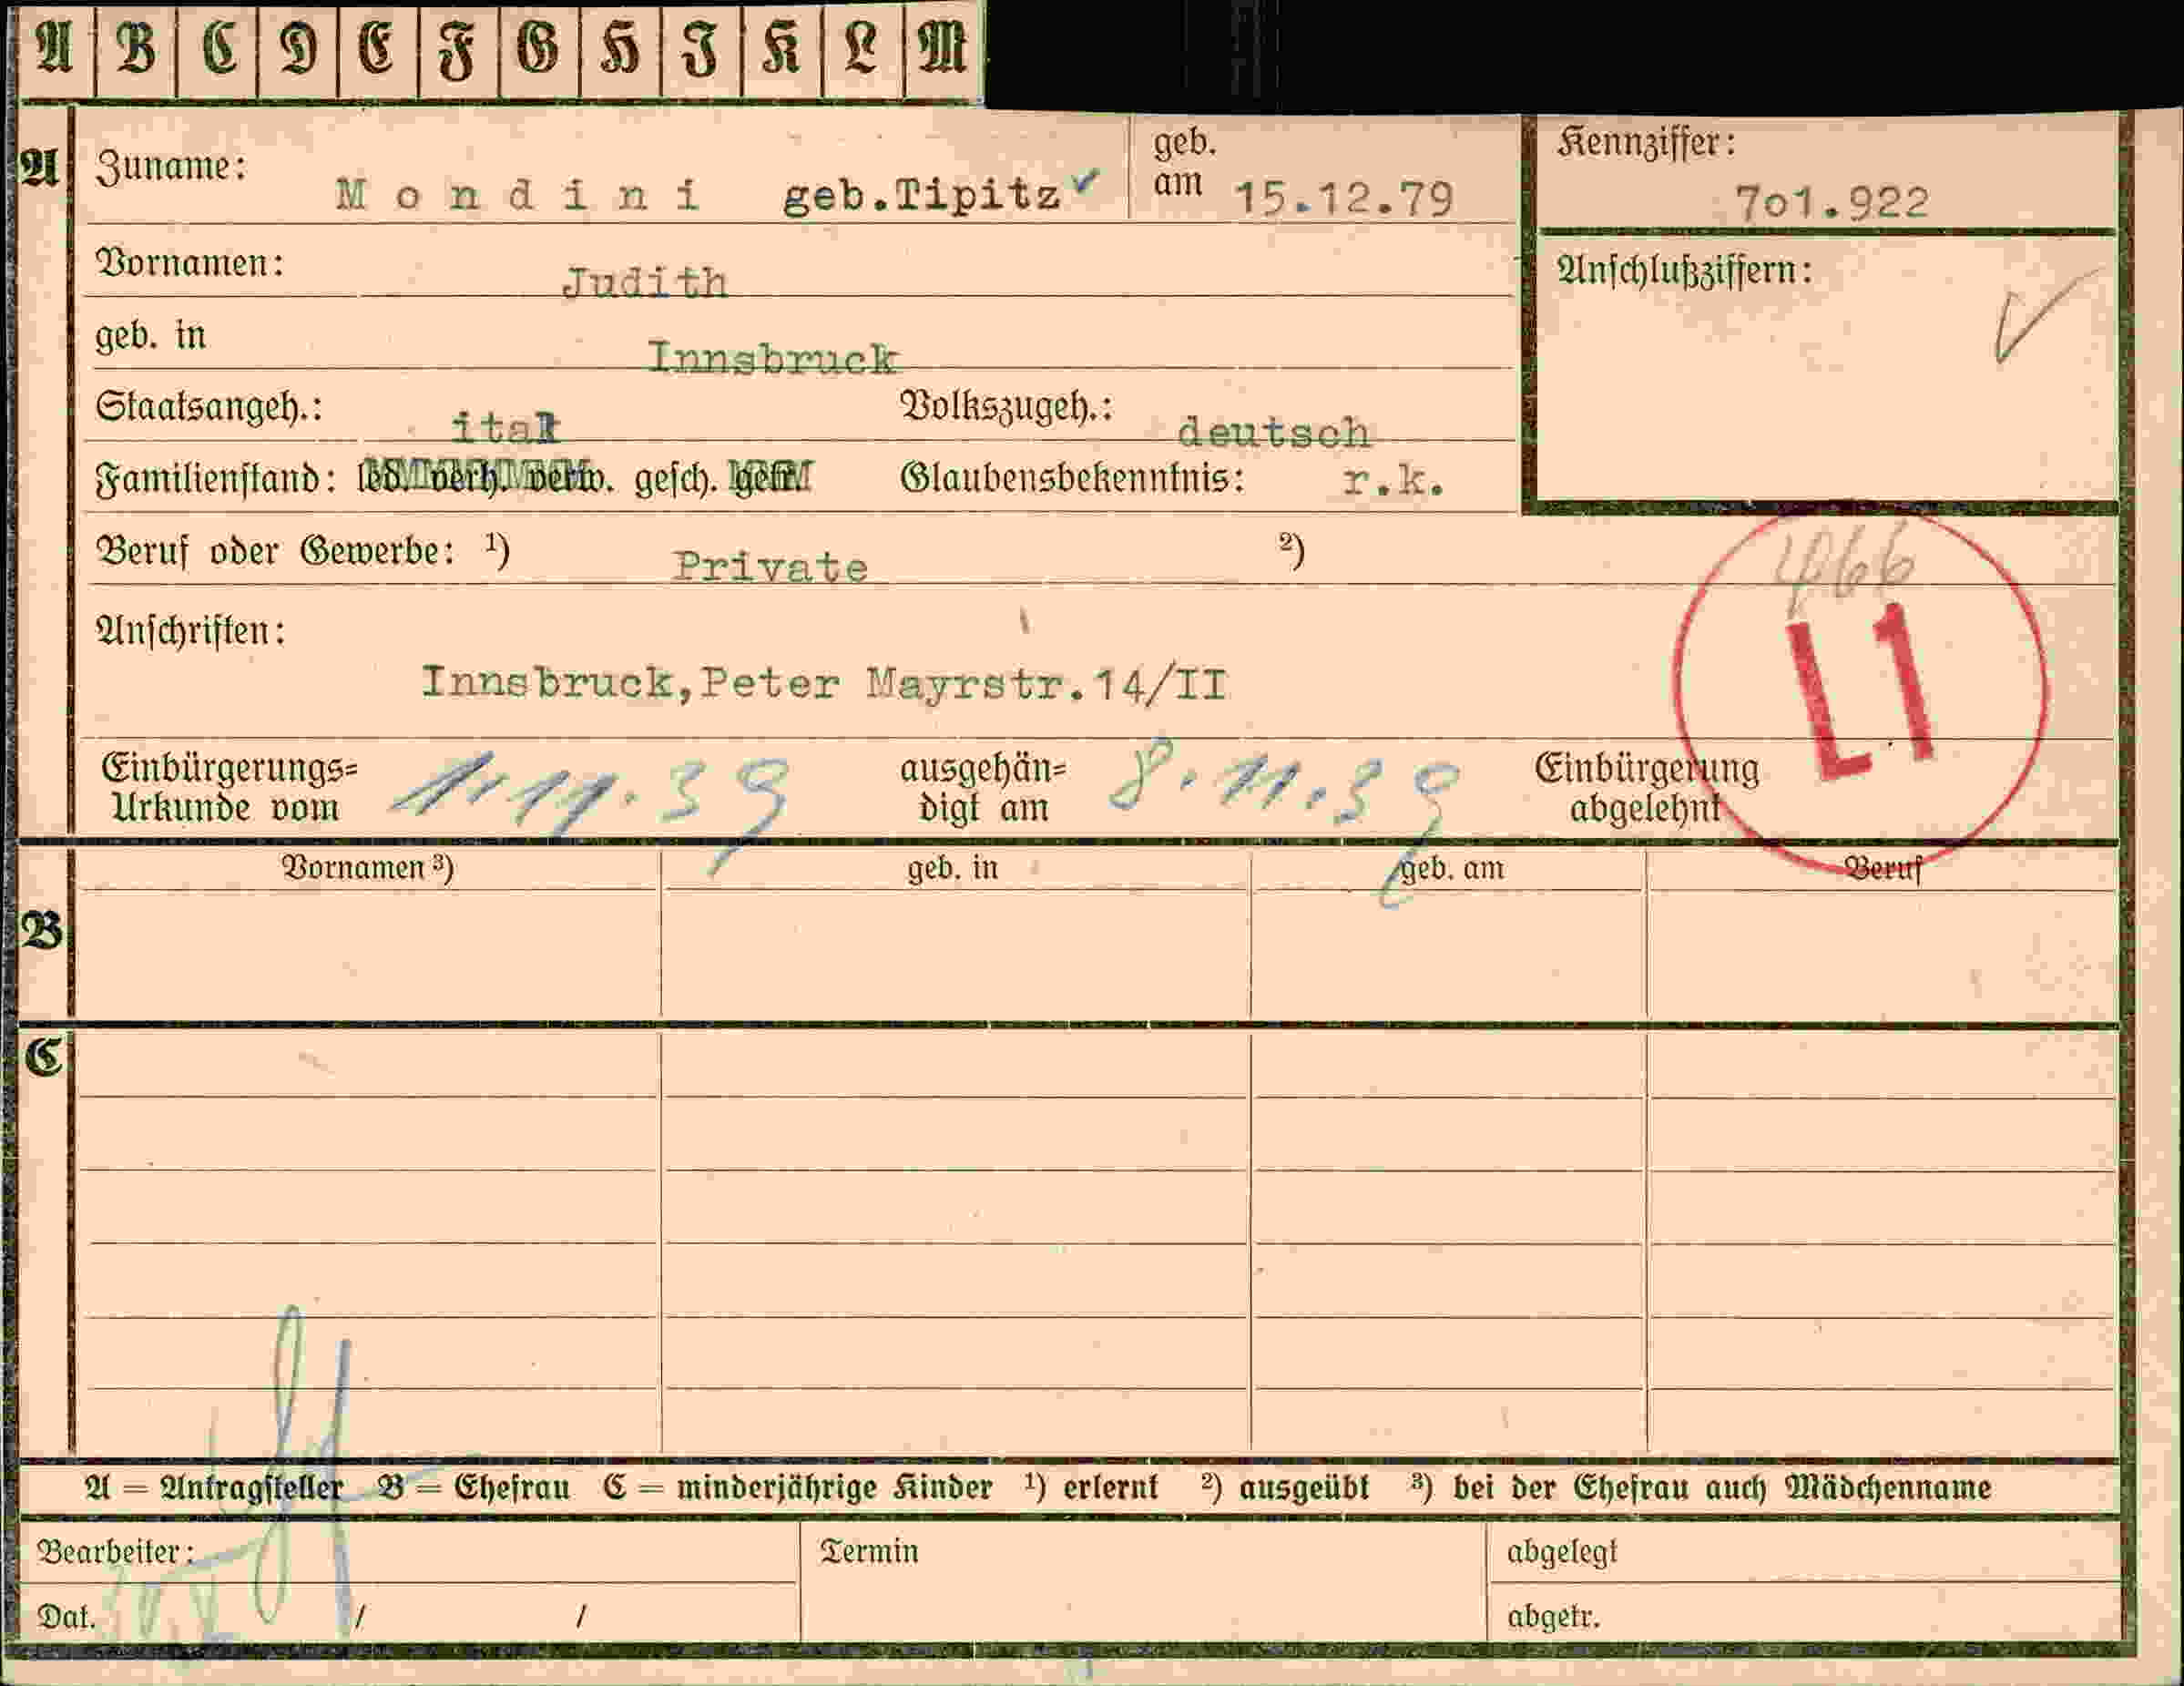 A B C D E F G H J K L M
A Zuname: Mondini geb.Tipitz geb. am 15.12.79 Kennziffer: 701.922
Vornamen: Judith Anschlußziffern:
geb. in Innsbruck
Staatsangeh.: ital Volkszugeh.: deutsch
Familienstand: led. verh. verw. gesch. getr. Glaubensbekenntnis: r.k.
Beruf oder Gewerbe: 1) Private 2) 466
Anschriften: L1
Innsbruck,Peter Mayrstr.14/II
Einbürgerungs= Urkunde vom 1.11.39 ausgehän= digt am 8.11.39 Einbürgerung abgelehnt
Vornamen 3) geb. in geb. am Beruf
B
C
A = Antragsteller B = Ehefrau C = minderjährige Kinder 1) erlernt 2) ausgeübt 3) bei der Ehefrau auch Mädchenname
Bearbeiter: Termin abgelegt
Dat. / / abgetr.